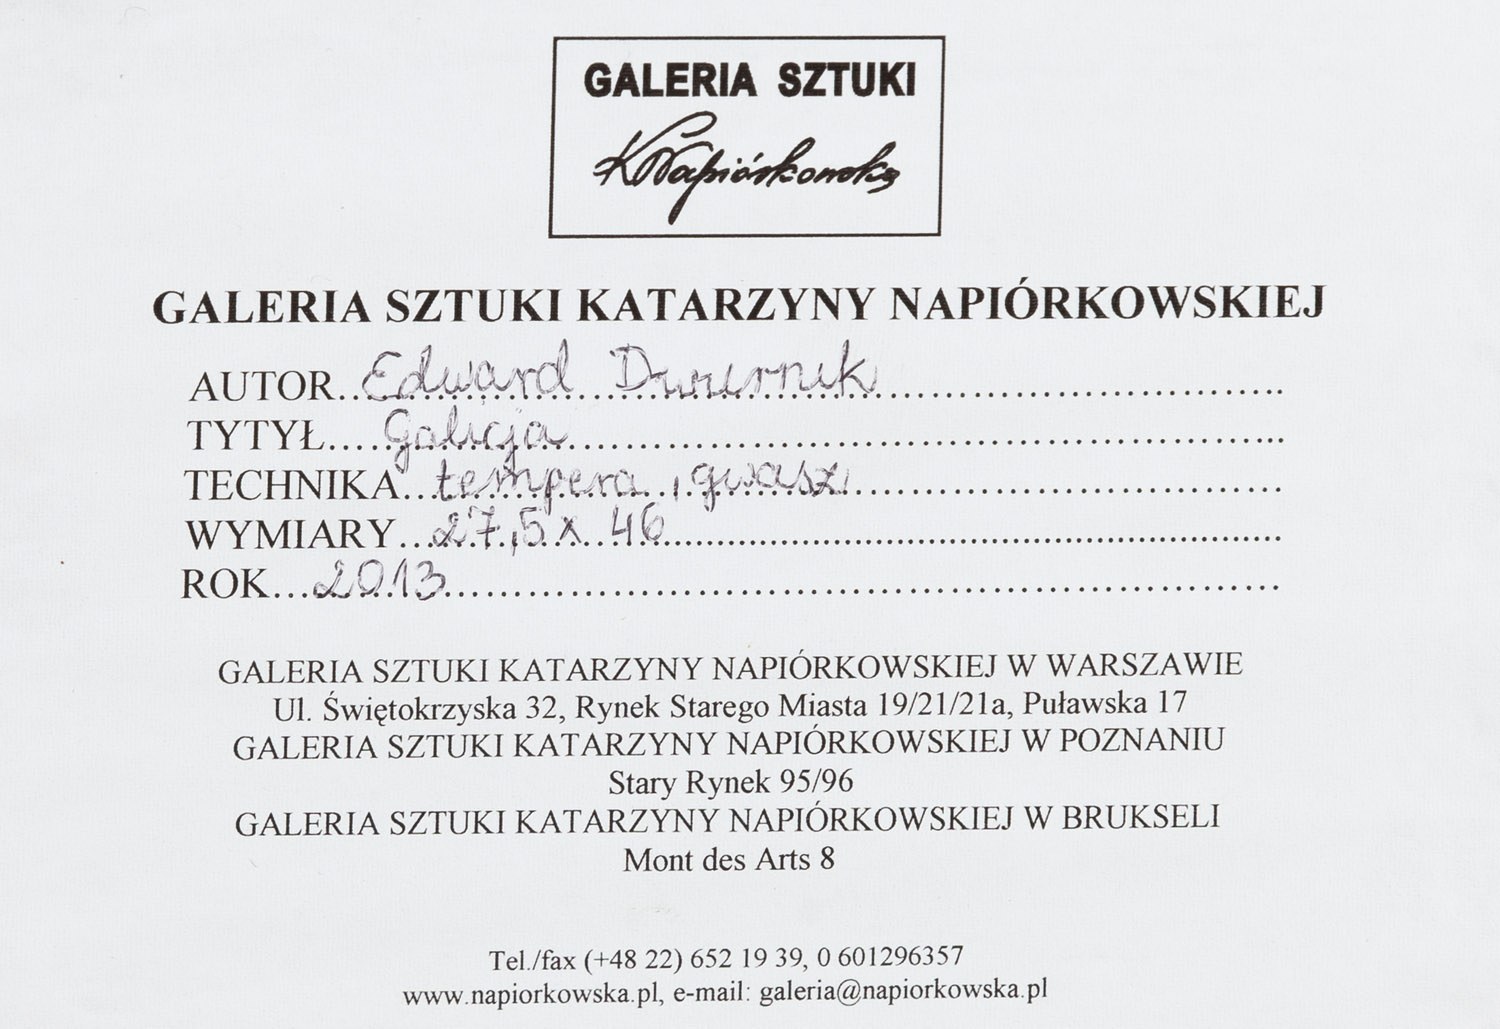 GALERIA SZTUKI
KNapiórkowska
GALERIA SZTUKI KATARZYNY NAPIÓRKOWSKIEJ
AUTOR..Edward Dwurnik..............................
TYTYŁ....Galicja..............................
TECHNIKA...tempera, gwasz..............................
WYMIARY...27,5 x 46..............................
ROK...2013..............................
GALERIA SZTUKI KATARZYNY NAPIÓRKOWSKIEJ W WARSZAWIE
Ul. Świętokrzyska 32, Rynek Starego Miasta 19/21/21a, Puławska 17
GALERIA SZTUKI KATARZYNY NAPIÓRKOWSKIEJ W POZNANIU
Stary Rynek 95/96
GALERIA SZTUKI KATARZYNY NAPIÓRKOWSKIEJ W BRUKSELI
Mont des Arts 8
Tel./fax (+48 22) 652 19 39, 0 601296357
www.napiorkowska.pl, e-mail: galeria@napiorkowska.pl